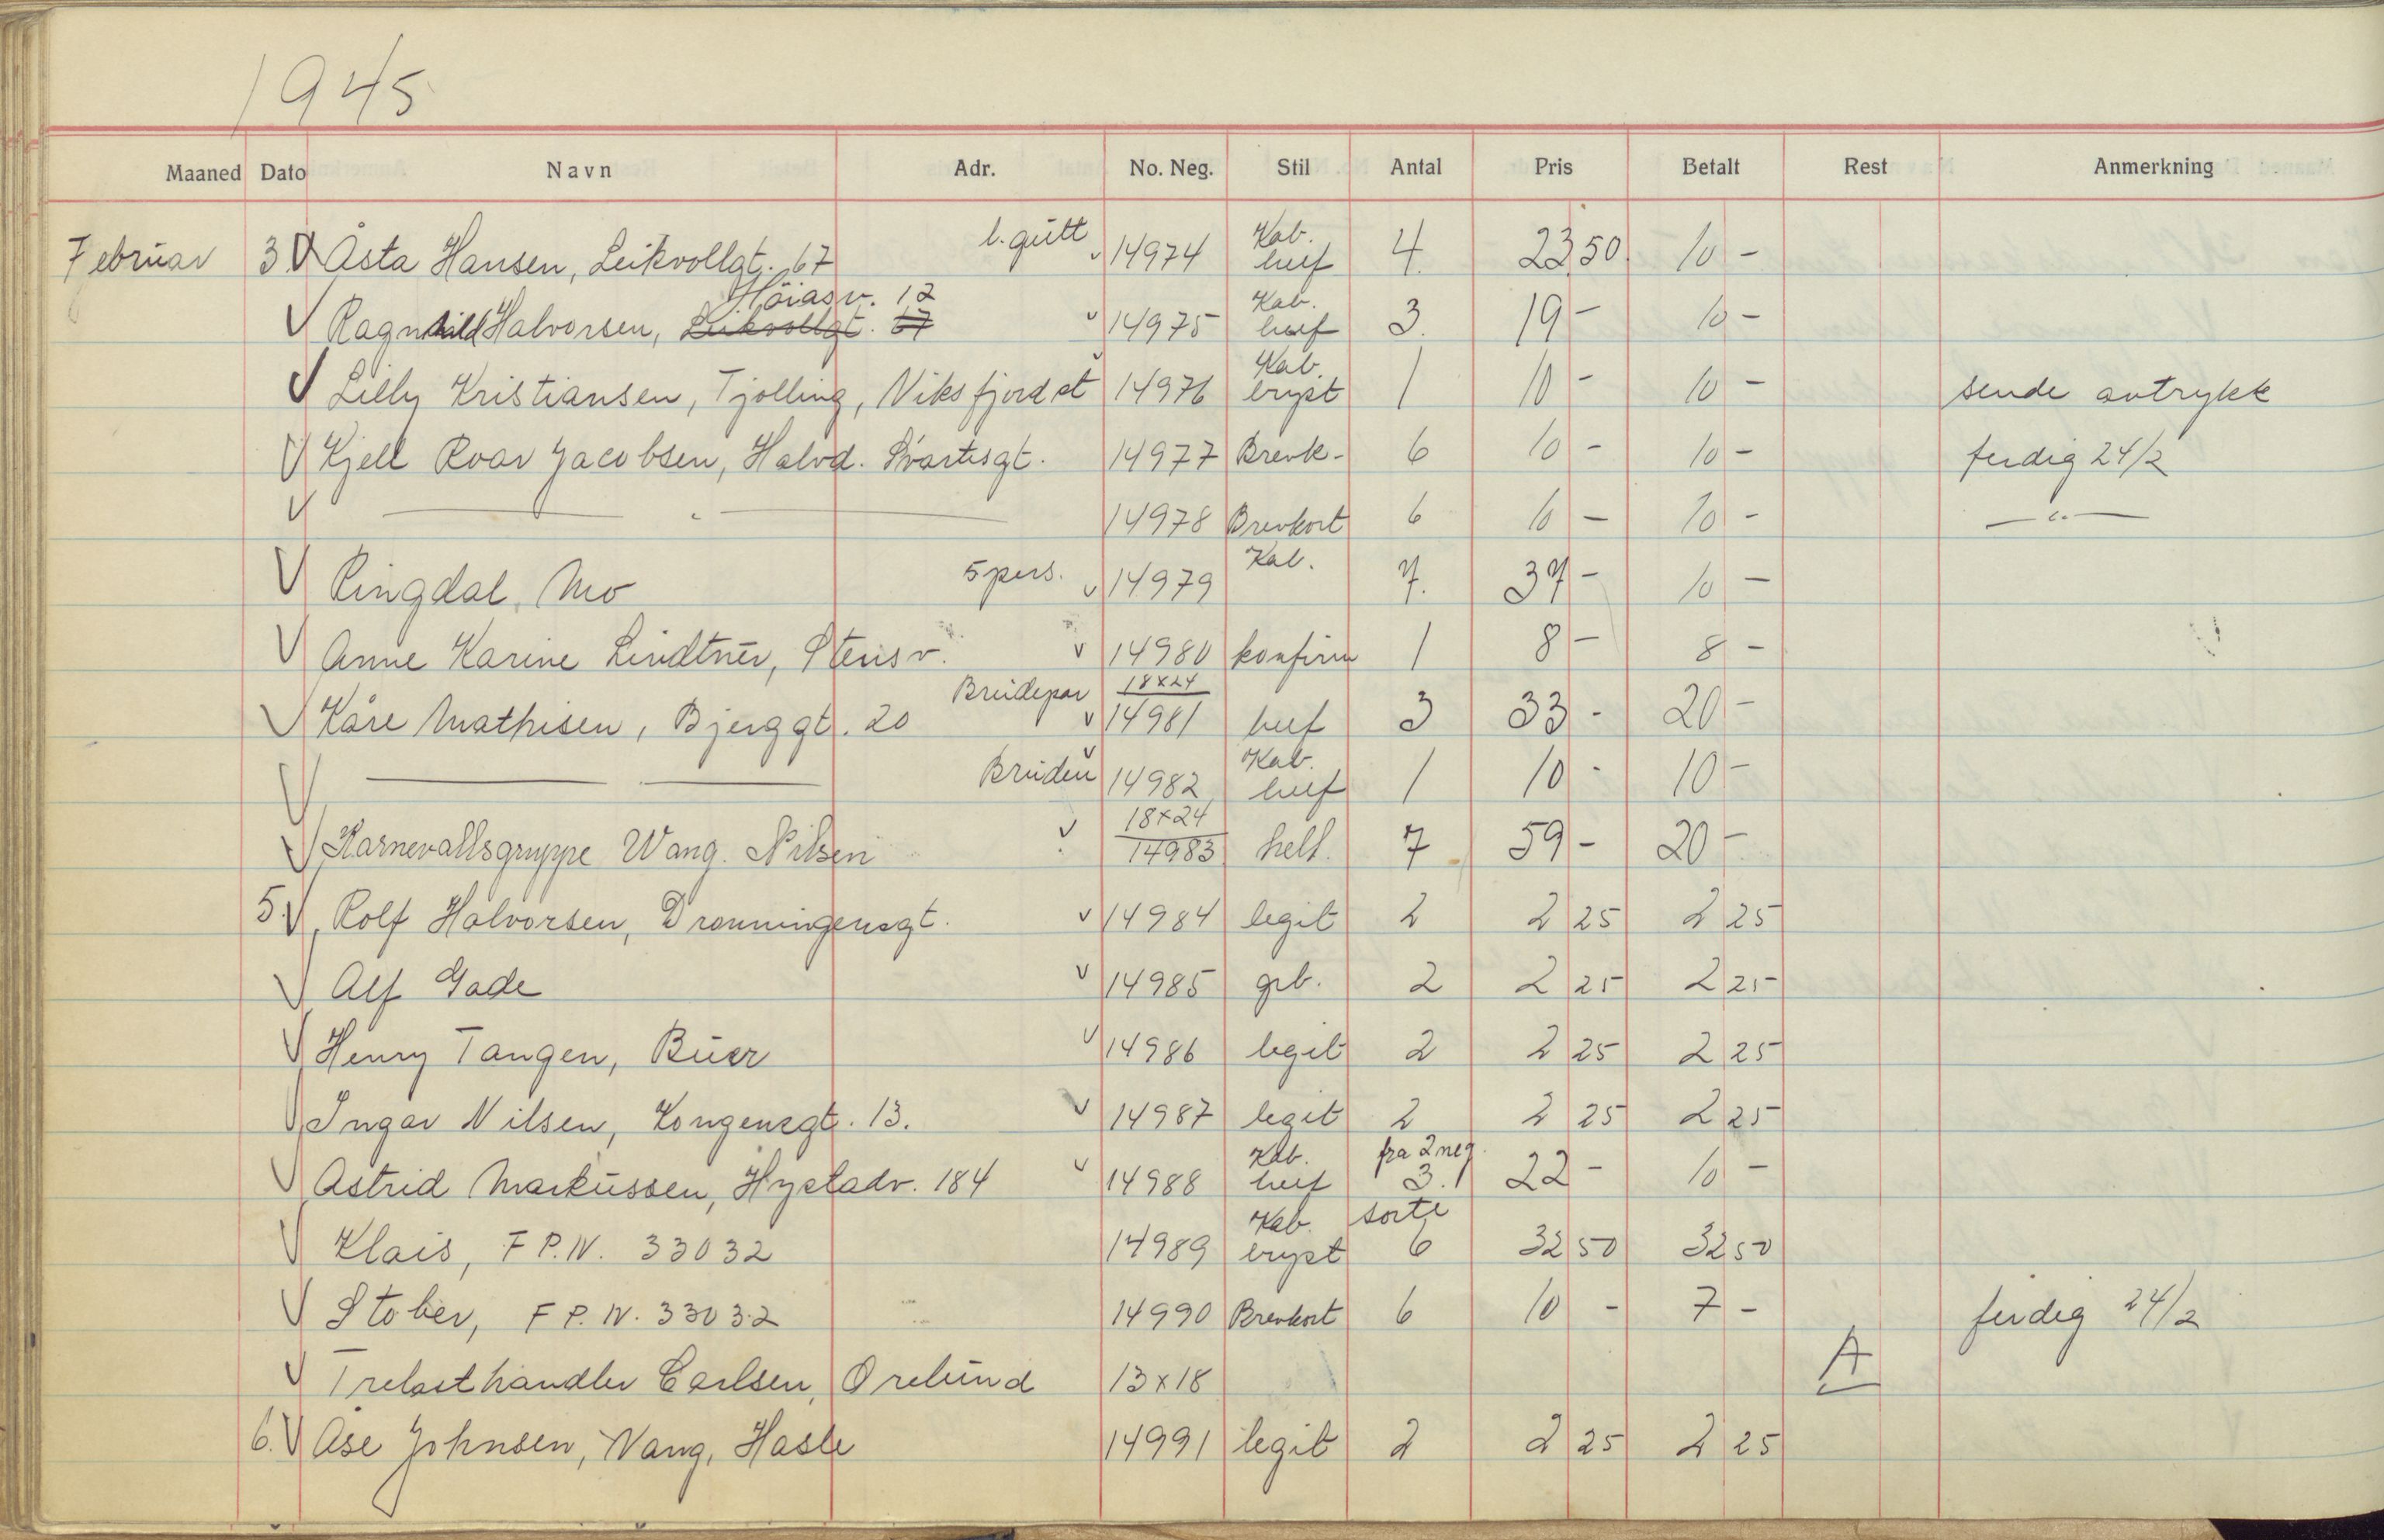 1945
Maaned Dato Navn Adr. No. Neg. Stil Antal Pris Betalt Rest Anmerkning
Februar 3 V Åsta Hansen, Leikvollgt. 67 l. gutt v 14974 Kab. huf 4. 23 50 10 -
V Ragnhild Halvorsen, Leikvollgt. 67 Höiasv. 12 v 14975 Kab. huf 3. 19 - 10 -
V Lilly Kristiansen, Tjølling, Viksfjord st v 14976 Kab. bryst 1 10 - 10 - sende avtrykk
V Kjell Roar Jacobsen, Halvd. Svartesgt. 14977 Brevk- 6 10 - 10 - ferdig 24/2
V — " — 14978 Brevkort 6 10 - 10 - — " —
V Ringdal, Mo 5 pers. v 14979 Kab. 7. 37 - 10 -
V Anne Karine Lindtner, Stensv. v 14980 konfirm 1 8 - 8 -
V Kåre Mathisen, Bjerggt. 20 Brudepar v 18x24 14981 huf 3 33 - 20 -
V — — Bruden v 14982 Kab. huf 1 10 - 10 -
V Karnevallsgruppe Wang. Nilsen v 18x24 14983 helf. 7 59 - 20 -
5. V Rolf Halvorsen, Dronningensgt. v 14984 legit 2 2 25 2 25
V Alf Gade v 14985 grb. 2 2 25 2 25
V Henry Tangen, Buer v 14986 legit 2 2 25 2 25
V Ingar Nilsen, Kongensgt. 13. v 14987 legit 2 2 25 2 25
V Astrid Markussen, Hystadv. 184 v 14988 Kab. huf fra 2 neg. 3. 22 - 10 -
V Klais, F P. N. 33032 14989 Kab. bryst sorte 6 32 50 32 50
V Stober, F P. N. 33032 14990 Brevkort 6 10 - 7 - ferdig 24/2
V Trelasthandler Carlsen, Orelund 13x18 A
6. V Åse Johnsen, Nang, Hasle 14991 legit 2 2 25 2 25